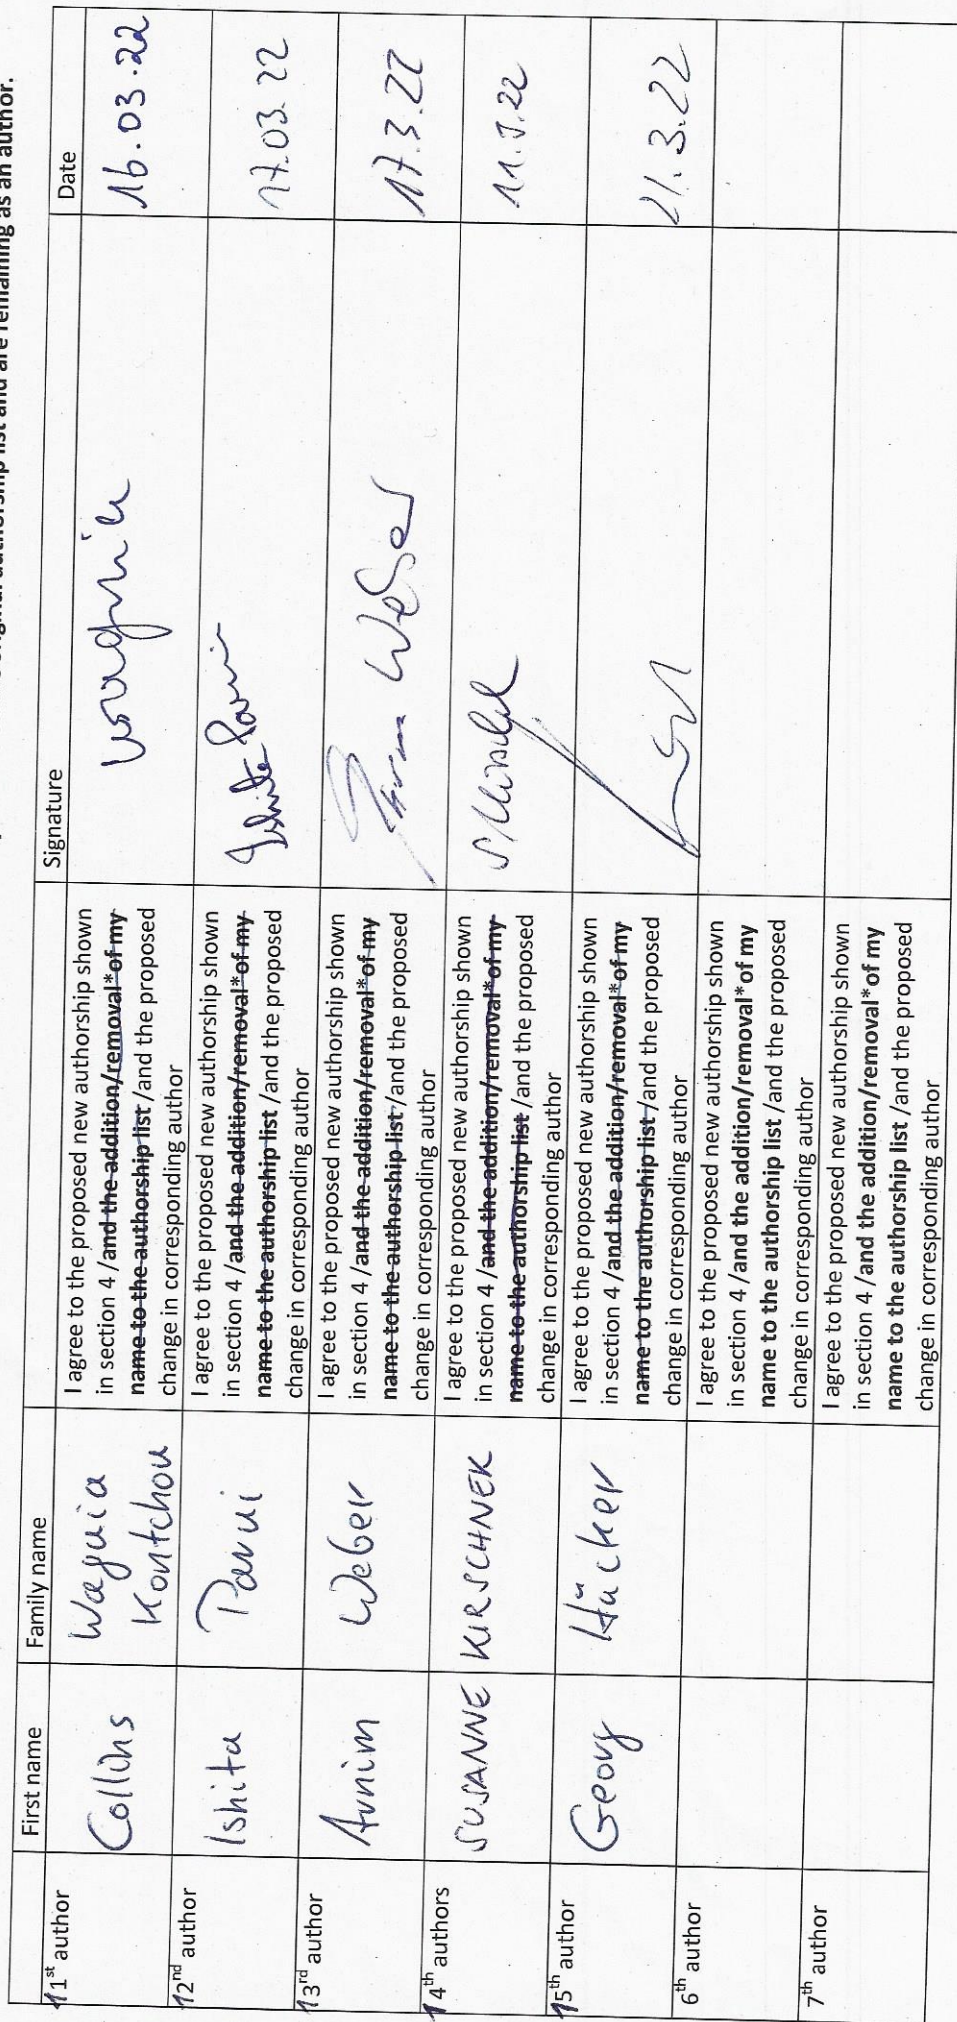 original authorship list and are remaining as an author.
First name Family name Signature Date
11st author Collins Waguia Kontchou I agree to the proposed new authorship shown
in section 4 /and the addition/removal*of my
name to the authorship list /and the proposed
change in corresponding author
16.03.22
12nd author Ishita Parui I agree to the proposed new authorship shown
in section 4 /and the addition/removal*of my
name to the authorship list /and the proposed
change in corresponding author
Ishita Parui 17.03.22
13rd author Arnim Weber I agree to the proposed new authorship shown
in section 4 /and the addition/removal*of my
name to the authorship list /and the proposed
change in corresponding author
Weber 17.3.22
14th authors SUSANNE KIRSCHNEK I agree to the proposed new authorship shown
in section 4 /and the addition/removal*of my
name to the authorship list /and the proposed
change in corresponding author
15th author Georg Häcker I agree to the proposed new authorship shown
in section 4 /and the addition/removal*of my
name to the authorship list /and the proposed
change in corresponding author
21.3.22
6th author I agree to the proposed new authorship shown
in section 4 /and the addition/removal*of my
name to the authorship list /and the proposed
change in corresponding author
7th author I agree to the proposed new authorship shown
in section 4 /and the addition/removal*of my
name to the authorship list /and the proposed
change in corresponding author